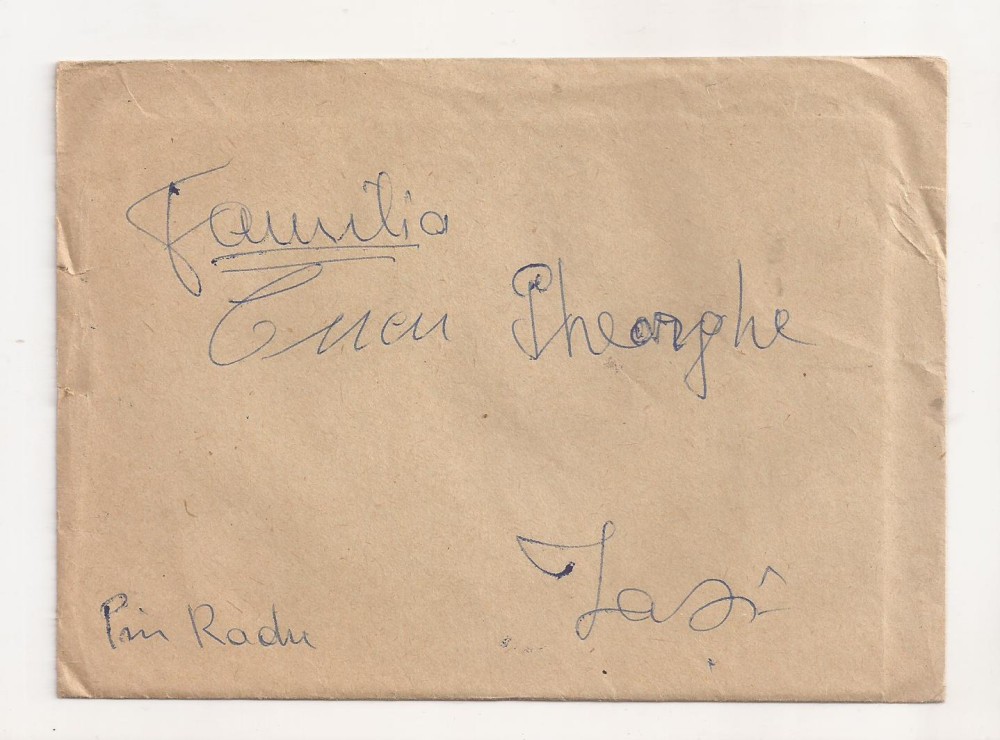 Familia
Cucu Gheorghe
Iași
Prin Radu